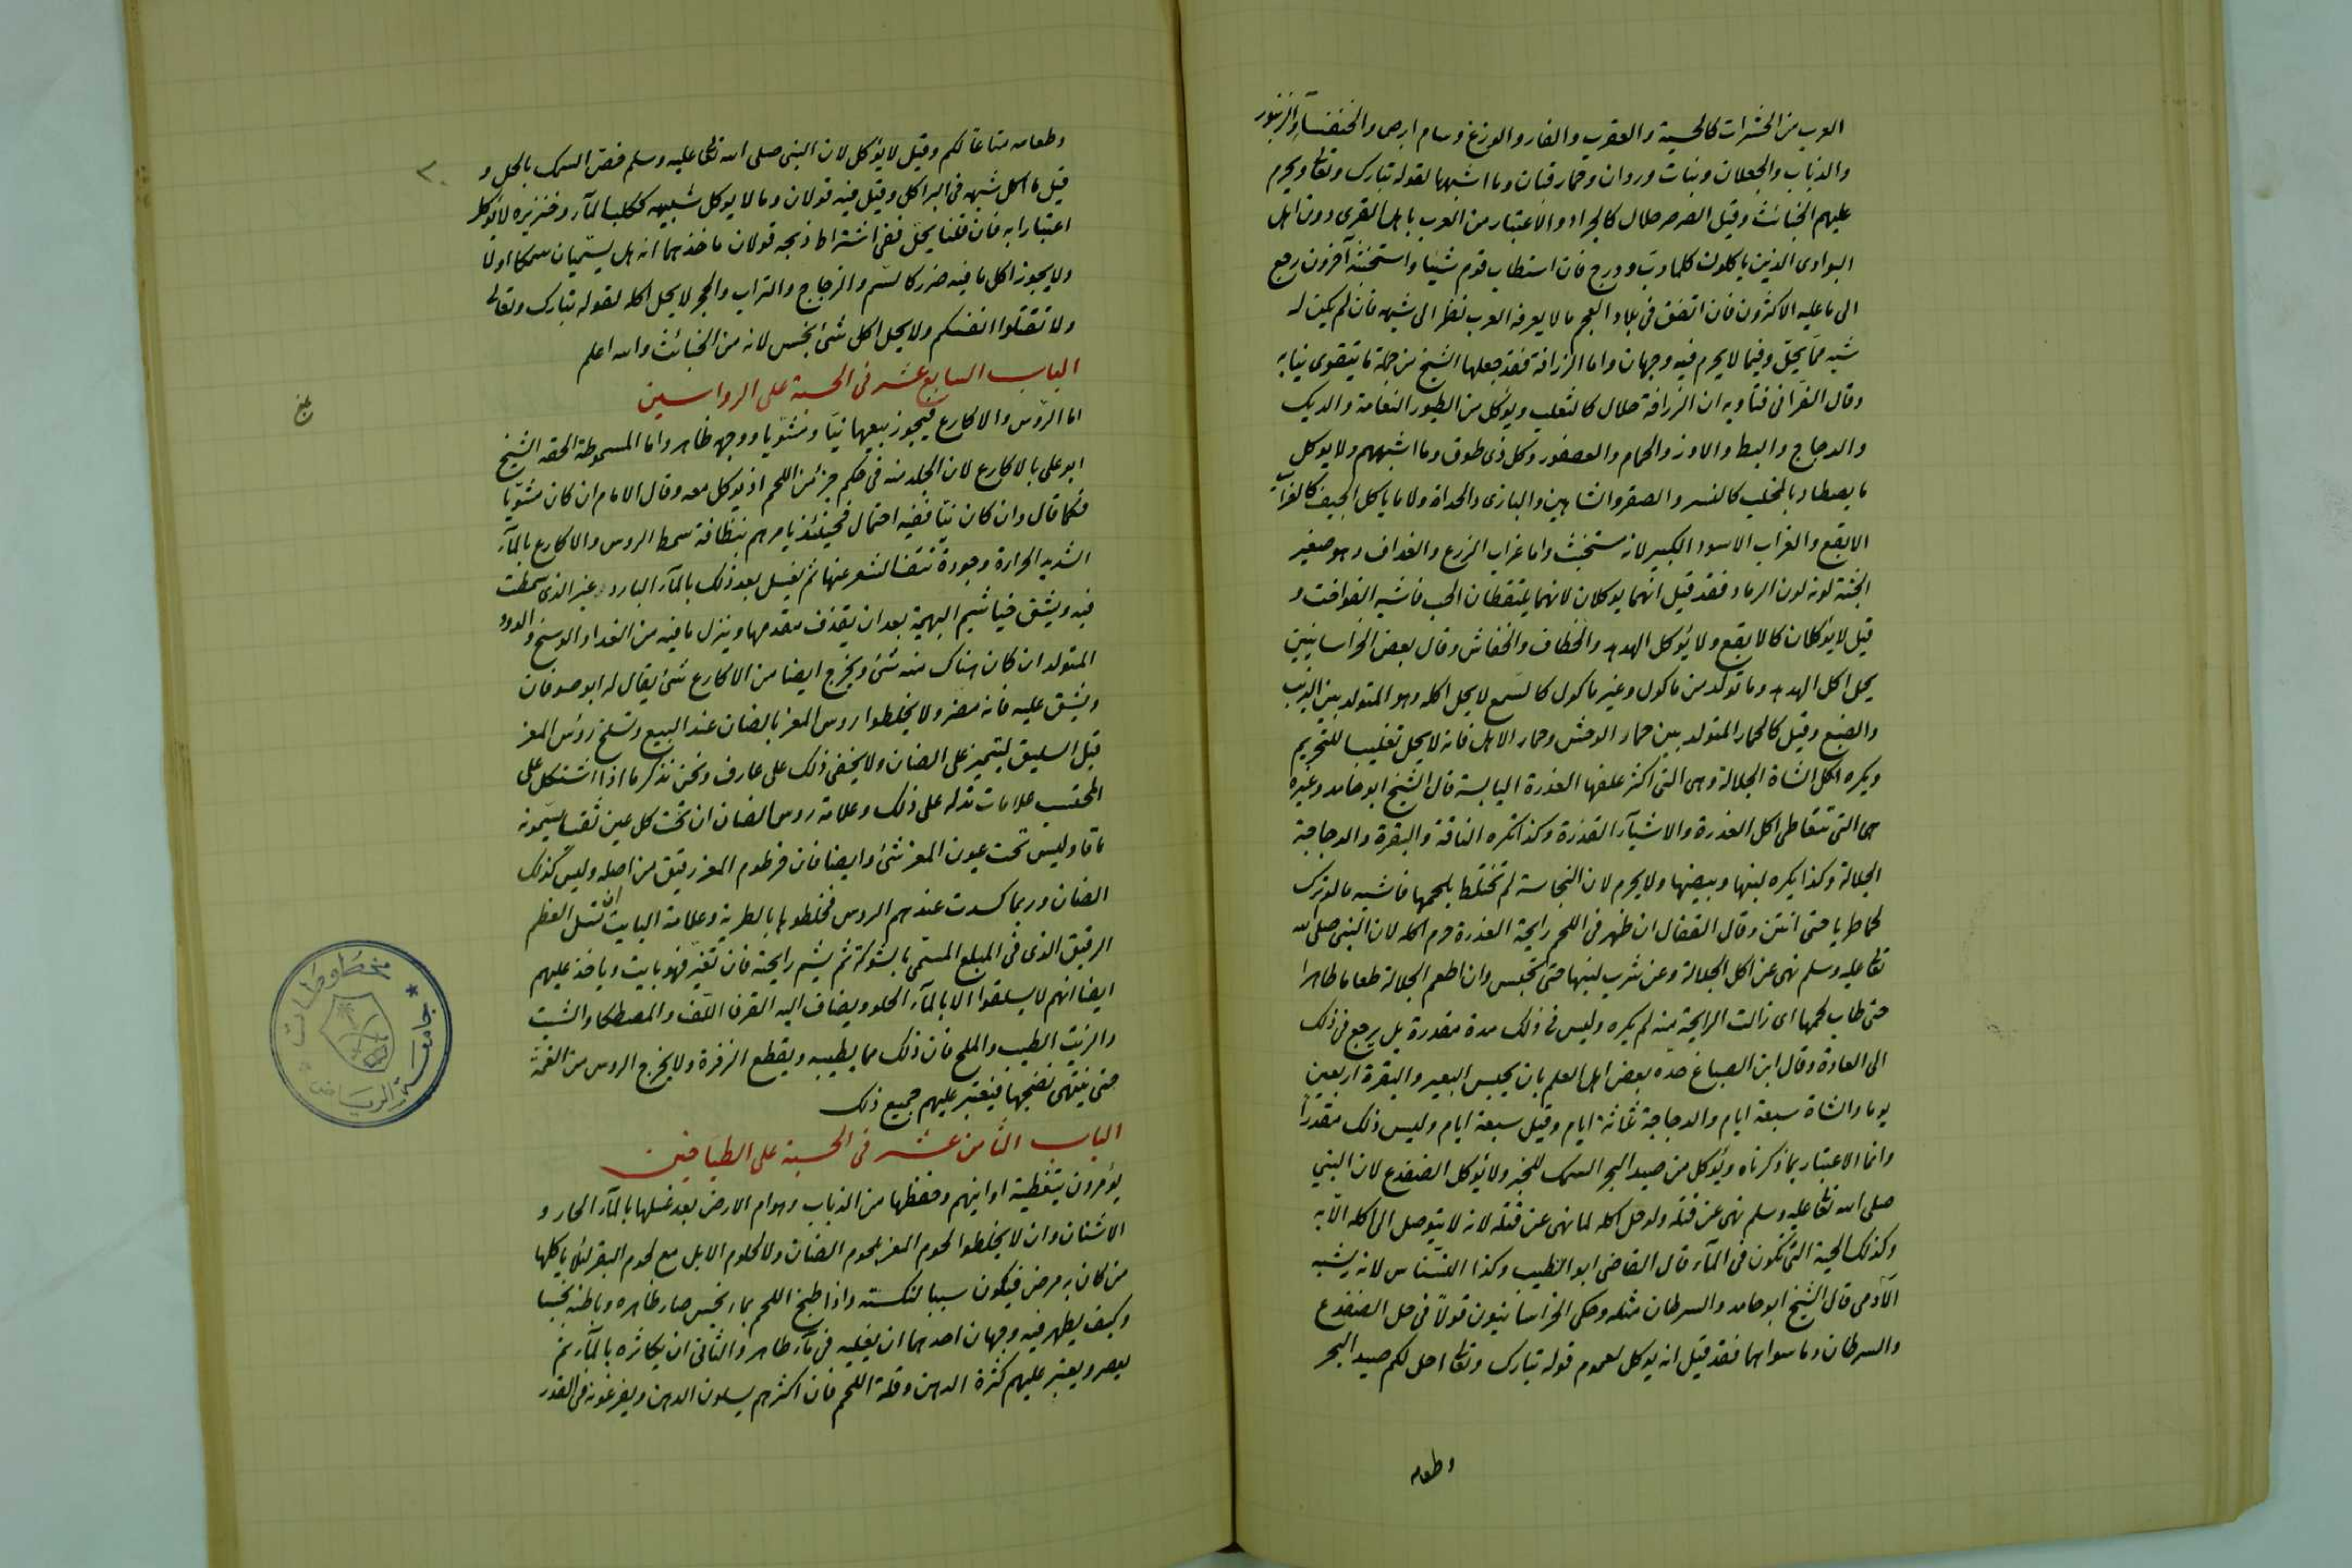 العرب من الحشرات كالحية والعقرب والفار والوزغ وسام ابرص والخنفسآء والزنبور
والذباب والجعلان وبنات وردان وحمار قبان وما اشبهها لقوله تبارك وتعالى ويحرم
عليهم الخبائث وقيل الصرصر حلال كالجراد والاعتبار من العرب باهل القرى دون اهل
البوادى الذين ياكلون كلما دب ودرج فان استطاب قوم شيئا واستخبثه آخرون رجع
الى ما عليه الاكثرون فان اتفق فى بلاد العجم ما لا يعرفه العرب نظر الى شبهه فان لم يكن له
شبه مما يحل وفيما لا يحرم فيه وجهان واما الزرافة فقد جعلها الشيخ من جملة ما يتقوى بنابه
وقال الفرا فى فتاويه ان الزرافة حلال كالثعلب ويؤكل من الطيور النعامة والديك
والدجاج والبط والاوز والحمام والعصفور وكل ذى طوق وما اشبههم ولا يوكل
ما يصطاد بالمخلب كالنسر والصقر والشاهين والبازى والحداة ولا ما ياكل الجيف كالغراب
الابقع والغراب الاسود الكبير لانه مستخبث واما غراب الزرع والغداف وهو صغير
الجثة لونه لون الرماد فقد قيل انهما يوكلان لانهما يلتقطان الحب فاشبه الفواخت و
قيل لا يؤكلان كالابقع ولا يؤكل الهدهد والخطاف والخفاش وقال بعض الخراسانيين
يحل اكل الهدهد وما تولد من ماكول وغير ماكول كالسمع لا يحل اكله وهو المتولد بين الذئب
والضبع وقيل كالحمار المتولد بين حمار الوحش وحمار الاهل فانه لا يحل تغليبا للتحريم
ويكره اكل الشاة الجلالة وهى التى اكثر علفها العذرة اليابسة قال الشيخ ابو حامد وغيره
هى التى تتعاطى اكل العذرة والاشيآء القذرة وكذا تكره الناقة والبقرة والدجاجة
الجلالة وكذا يكره لبنها وبيضها ولا يحرم لان النجاسة لم تختلط بلحمها فاشبه ما لو ترك
لحما طريا حتى انتن وقال القفال ان ظهر فى اللحم رايحة العذرة حرم اكله لان النبى صلى الله
تعالى عليه وسلم نهى عن اكل الجلالة وعن شرب لبنها حتى تحبس وان اطعم الجلالة طعاما طاهرا
حتى طاب لحمها اى زالت الرايحة منه لم يكره وليس فى ذلك مدة مقدرة بل يرجع فى ذلك
الى العادة وقال ابن الصباغ حده بعض اهل العلم بان يحبس البعير والبقرة اربعين
يوما والشاة سبعة ايام والدجاجة ثلثة ايام وقيل سبعة ايام وليس ذلك مقدرا
وانما الاعتبار بما ذكرناه ويؤكل من صيد البحر السمك للخبر ولا يؤكل الضفدع لان النبى
صلى الله تعالى عليه وسلم نهى عن قتله ولو حل اكله لما نهى عن قتله لانه لا يتوصل الى اكله الا به
وكذلك الحية التى تكون فى المآء قال القاضى ابو الطيب وكذا النسناس لانه يشبه
الآدمى قال الشيخ ابو حامد والسرطان مثله وحكى الخراسانيون قولا فى حل الضفدع
والسرطان وما سواهما فقد قيل انه يوكل لعموم قوله تبارك وتعالى احل لكم صيد البحر
وطعامه
وطعامه متاعا لكم وقيل لا يؤكل لان النبى صلى الله تعالى عليه وسلم خص السمك بالحل و
قيل ما اكل شبهه فى البر اكل وقيل فيه قولان وما لا يوكل شبيهه ككلب المآء وخنزيره لا يؤكل
اعتبارا به فان قلنا يحل ففى اشتراط ذبحه قولان ماخذهما انه هل يسميان سمكا او لا
ولا يجوز اكل ما فيه ضرر كالسم والزجاج والتراب والحجر لا يحل اكله لقوله تبارك وتعالى
ولا تقتلوا انفسكم ولا يحل اكل شئ نجس لانه من الخبائث والله اعلم
الباب السابع عشر فى الحسبة على الرواسين
اما الرؤس والاكارع فيجوز بيعها نيا ومشويا ووجهه ظاهر واما المسموطة الحقه الشيخ
ابو على بالاكارع لان الجلد منه فى حكم جزء من اللحم اذ يؤكل معه وقال الامام ان كان مشويا
فكما قال وان كان نيا ففيه احتمال فحينئذ يامرهم بنظافة سمط الروس والاكارع بالمآء
الشديد الحرارة وجودة نتف الشعر عنها ثم يغسل بعد ذلك بالمآء البارد غير الذى سمطت
فيه ويشق خياشيم البهيمة بعد ان يقذف مقدمها وينزل ما فيه من القذا والوسخ والدود
المتولد ان كان هناك منه شئ ويخرج ايضا من الاكارع شئ يقال له ابو صوفان
ويشق عليه فانه مضر ولا يخلطوا روس المعز بالضان عند البيع وتسلخ رؤس المعز
قبل السليق ليتميز على الضان ولا يخفى ذلك على عارف ونحن نذكر ما اذا اشكل على
المحتسب علامات تدله على ذلك وعلامة روس الضان ان تحت كل عين ثقب يسمونه
ماقا وليس تحت عيون المعز شئ وايضا فان خرطوم المعز رقيق من اصله وليس كذلك
الضان وربما كسدت عندهم الروس فخلطوها بالطرية وعلامة البايت ان تسل العظم
الرقيق الذى فى المبلع المسمى بالشوكة ثم يشم رايحته فان تغير فهو بايت وياخذ عليهم
ايضا انهم لا يسلقوا الا بالمآء الحلو ويضاف اليه القرفا اللف والمصطكا والشبت
والزيت الطيب والملح فان ذلك مما يطيبه ويقطع الزفرة ولا يخرج الروس من الغمة
حتى ينتهى نضجها فيعتبر عليهم جميع ذلك
الباب الثامن عشر فى الحسبة على الطباخين
يؤمرون بتغطية اوانيهم وحفظها من الذباب وهوام الارض بعد غسلها بالمآء الحار و
الاشنان وان لا يخلطوا لحوم المعز بلحوم الضان ولا لحوم الابل مع لحوم البقر لئلا ياكلها
من كان به مرض فيكون سببا لنكسته واذا طبخ اللحم بماء نجس صار ظاهره وباطنه نجسا
وكيف يطهر فيه وجهان احدهما ان يغليه فى مآء طاهر والثانى ان يكاثره بالمآء ثم
يعصر ويعتبر عليهم كثرة الدهن وقلة اللحم فان اكثرهم يسلون الدهن ويفرغونه فى القدر
٢٠
مخطوطات
جامعة الرياض